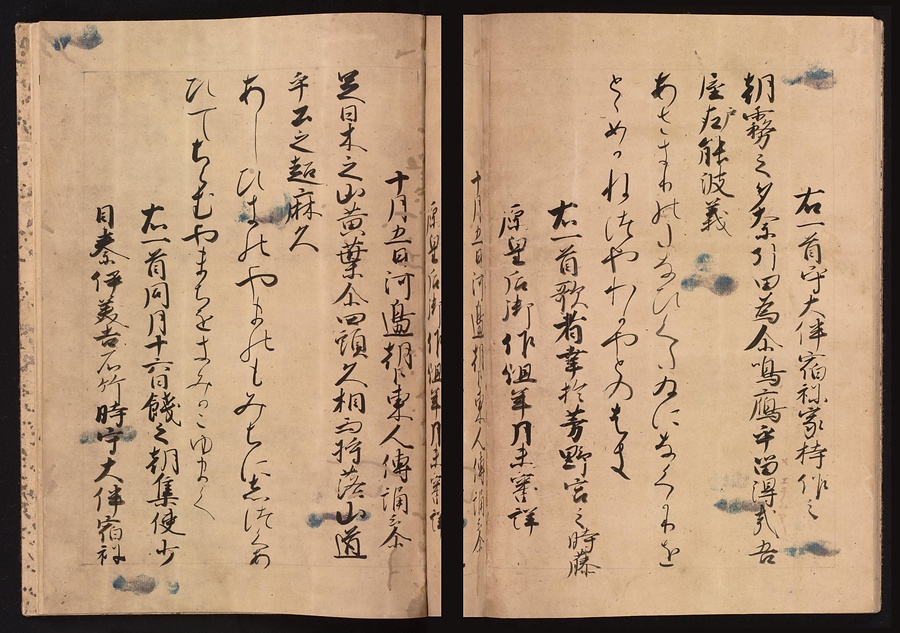 右一首守大伴宿祢家持作之
朝霧之多奈引田為尓鳴鴈乎留得哉吾
屋戸能波義
あさきりのたなひくたゐになくかりを
とゝめかねつやわかやとのはき
右一首歌者幸於芳野宮之時藤
原皇后御作但年月未審詳
十月五日河邊朝臣東人傳誦云尓
足日木之山黄葉尓四頭久相而将落山道
乎公之超麻久
あしひきのやまのもみちにしつくあ
ひてちらむやまちをきみかこゆまく
右一首同月十六日餞之朝集使少
目秦伊美吉石竹時守大伴宿祢